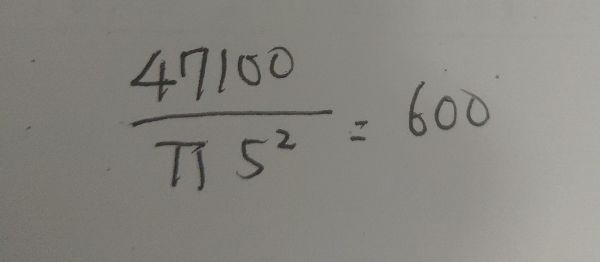 47100
π 5² = 600